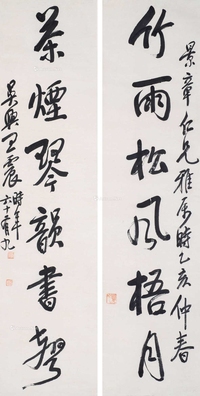 景章仁兄雅属時乙亥仲春
竹雨松風梧月
茶煙琴韻書聲
吳興王震時年六十有九